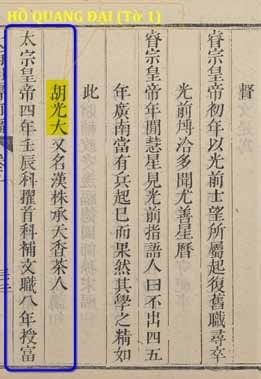 HỒ QUANG ĐẠI (Tờ 1)
督
睿宗皇帝初年以光前士望所屬起復舊職尋卒
光前博洽多聞尤善星曆
睿宗皇帝年間慧星見光前指語人曰不出四五
年廣南當有兵起巳而果然其學之精如
此
胡光大又名漢株承天香茶人
太宗皇帝四年壬辰科擢首科補文職八年授富